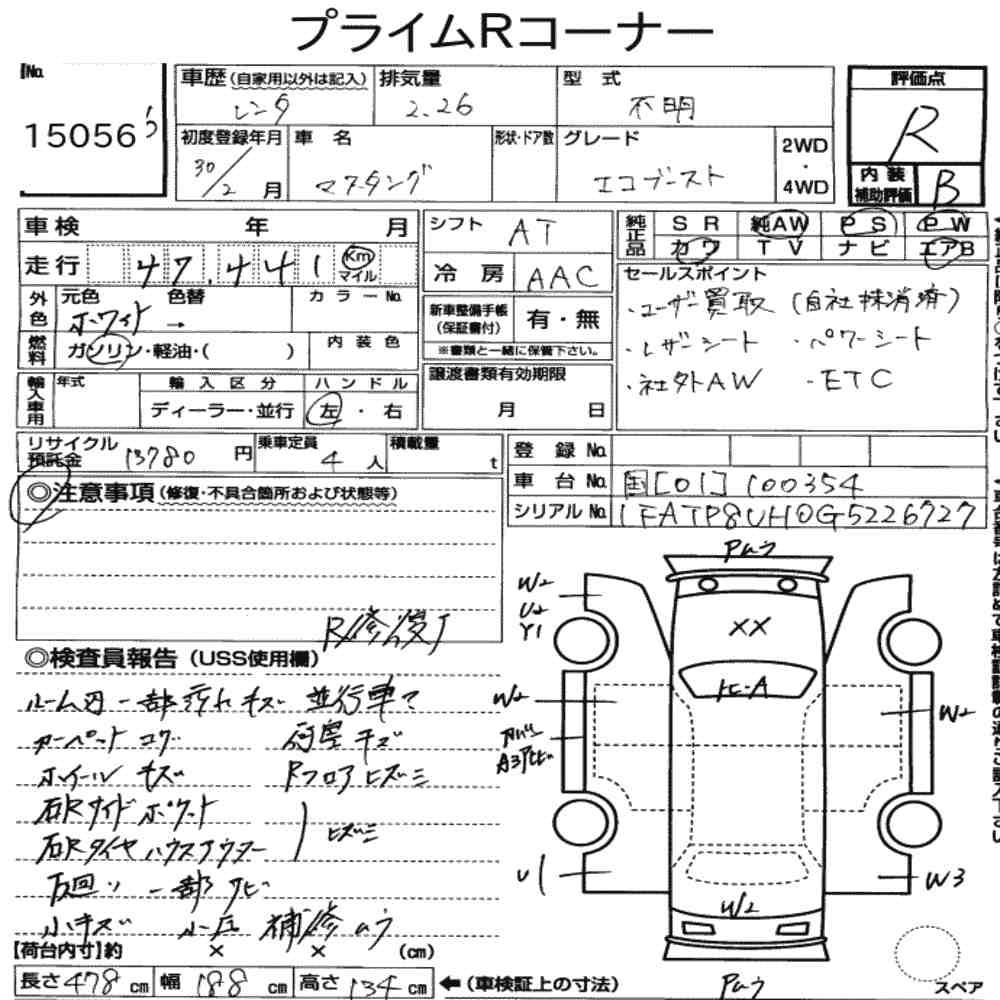 プライムRコーナー
No.
15056
車歴 (自家用以外は記入)
レンタ
排気量
2.26
型式
不明
評価点
R
初度登録年月
30/2 月
車名
マスタング
形状・ドア数
グレード
エコブースト
2WD
・
4WD
内装
補助評価
B
車検 年 月
走行 47,441 Km マイル
シフト AT
冷房 AAC
純正品
SR 純AW PS PW
カワ TV ナビ エアB
外色
元色 色替 カラーNo.
ホワイト →
燃料
ガソリン・軽油・( )
内装色
新車整備手帳
(保証書付)
有・無
※書類と一緒に保管下さい。
セールスポイント
・ユーザー買取 (自社抹消済)
・レザーシート ・パワーシート
・社外AW ・ETC
輸入車用
年式
輸入区分
ディーラー・並行
ハンドル
左・右
譲渡書類有効期限
月 日
リサイクル
預託金 13780 円
乗車定員 4 人
積載量 t
登録No.
車台No. 国[01]100354
シリアルNo. 1FATP8UH0G5226727
◎注意事項 (修復・不具合箇所および状態等)
R修復J
◎検査員報告 (USS使用欄)
ルーム内 一部汚れキズ 並行車
カーペットコゲ
荷室キズ
ホイールキズ
Rフロアヒズミ
右Rサイドポケット
右Rタイヤハウスアウター
ヒズミ
下回り 一部サビ
小キズ 小凹 補修ムラ
【荷台内寸】約 × × (cm)
長さ 478 cm 幅 188 cm 高さ 134 cm
←(車検証上の寸法)
Pムラ
W2
U2
Y1
XX
トビ-A
W2
W2
U1
W3
W2
Pムラ
スペア